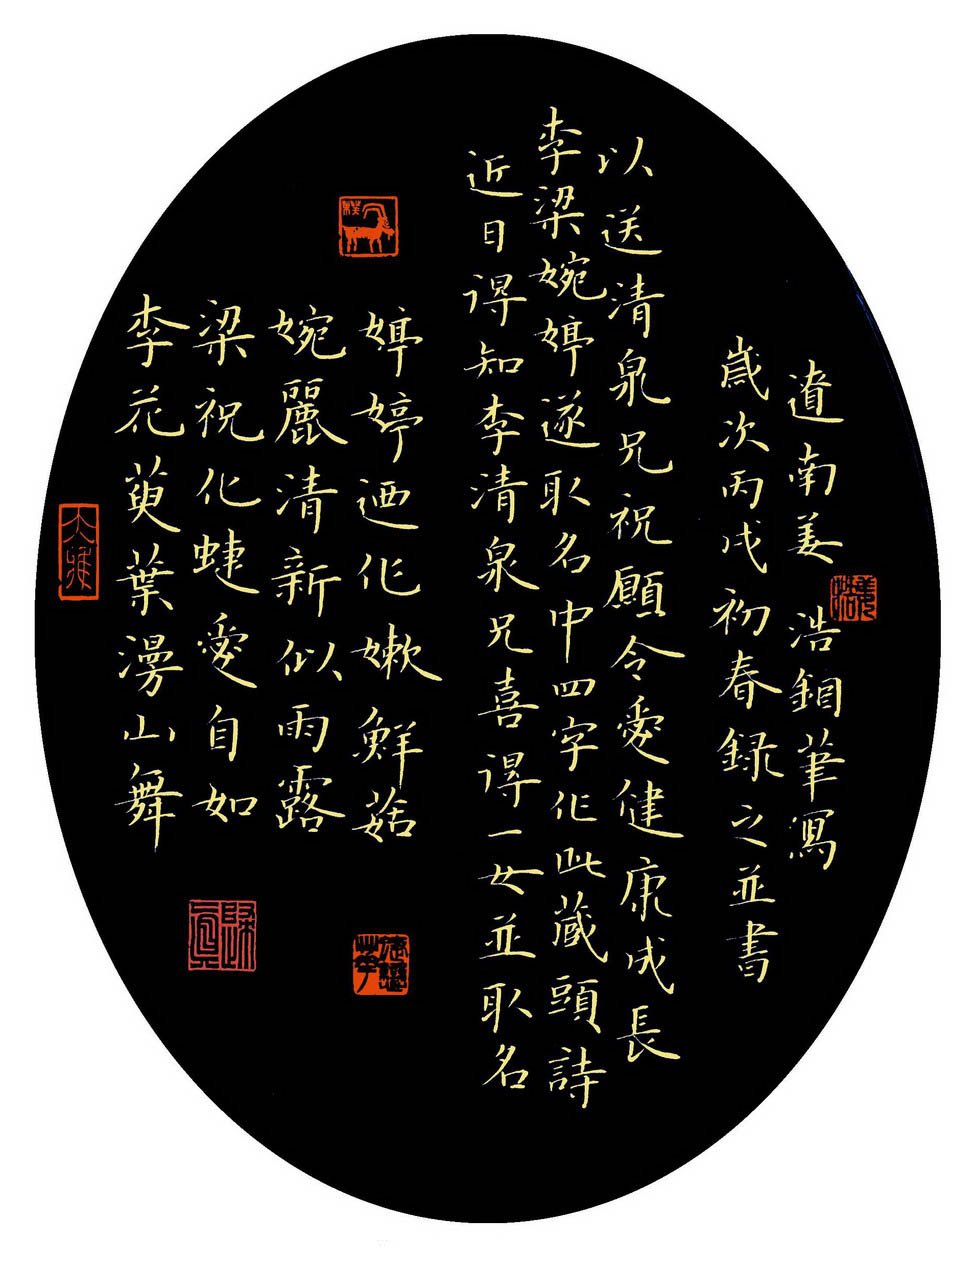 大雅
李花萸葉漫山舞
梁祝化蜨愛自如
婉麗清新似雨露
婷婷迺作嫩鮮菇
近日得知李清泉兄喜得一女並取名
李梁婉婷遂取名中四字作此藏頭詩
以送清泉兄祝願令愛健康成長
歲次丙戌初春録之並書
遼南姜 浩鋼筆寫
姜浩